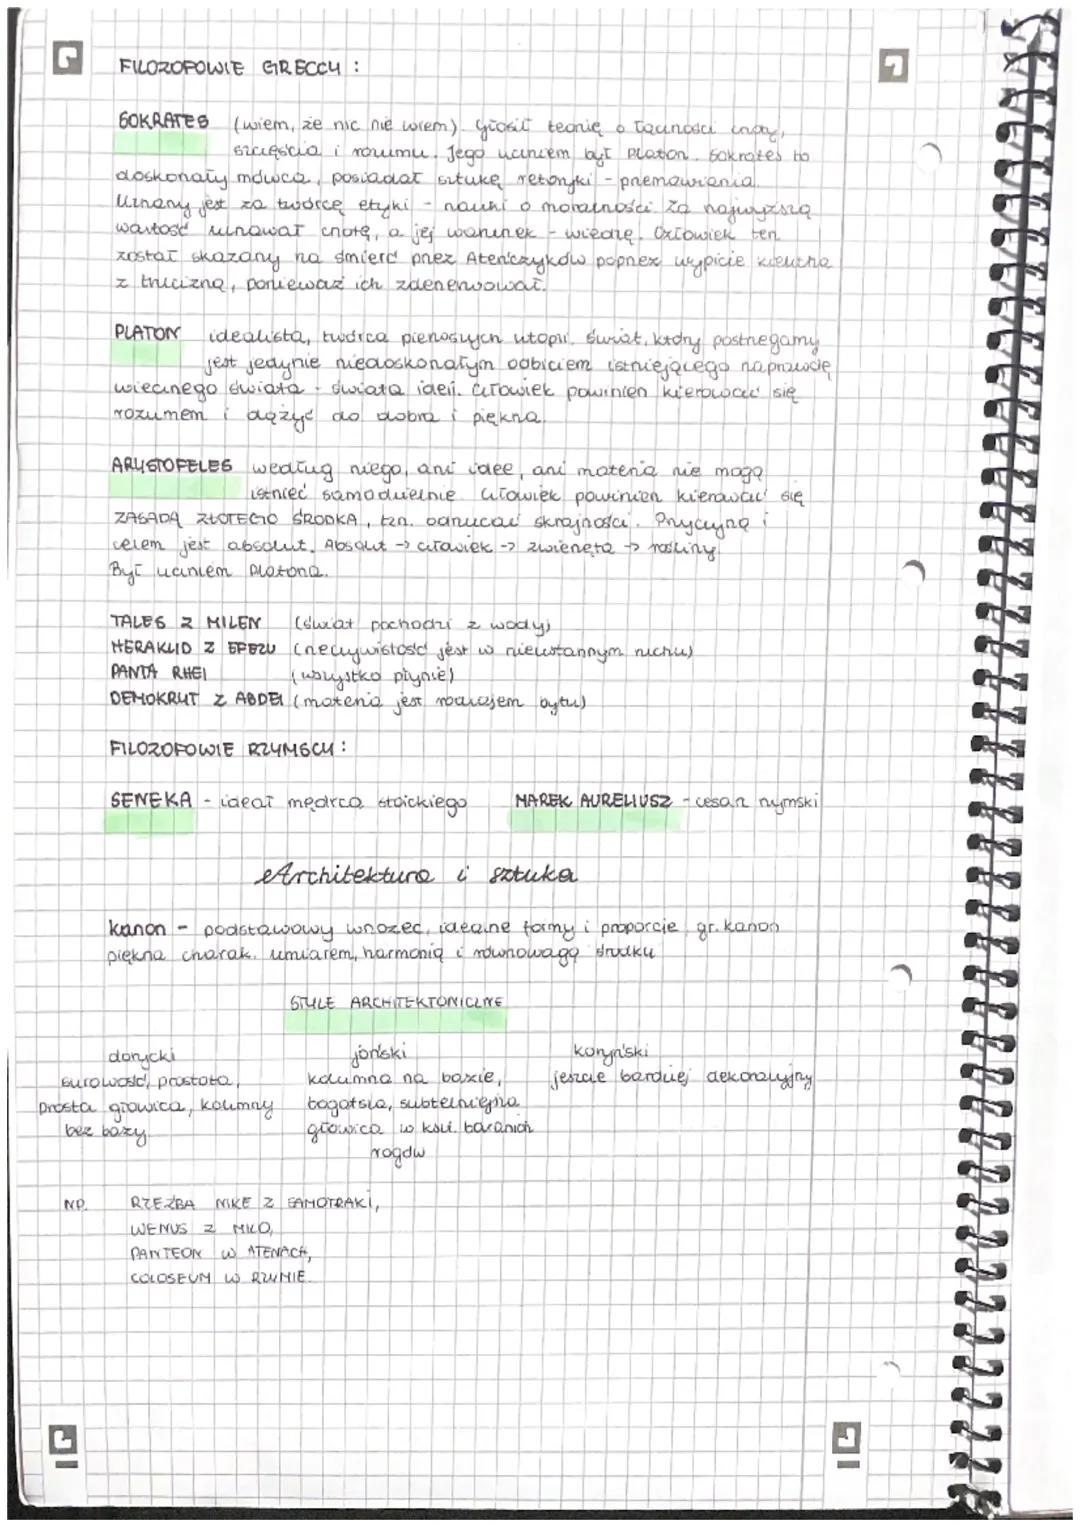 FILOZOFOWIE GRECCY :
SOKRATES (wiem, że nic nie wiem). Głosił teorię o łączności cnoty,
szczęścia i rozumu. Jego uczniem był Platon. Sokrates to
doskonały mówca, posiadał sztukę retoryki - przemawiania.
Uznany jest za twórcę etyki - nauki o moralności. Za najwyższą
wartość uznawał cnotę, a jej warunek - wiedzę. Człowiek ten
został skazany na śmierć przez Ateńczyków poprzez wypicie kielicha
z trucizną, ponieważ ich zdenerwował.
PLATON idealista, twórca pierwszych utopii. Świat, który postrzegamy
jest jedynie niedoskonałym odbiciem istniejącego naprawdę
wiecznego świata - świata idei. Człowiek powinien kierować się
rozumem i dążyć do dobra i piękna.
ARYSTOTELES według niego, ani idee, ani materia nie mogą
istnieć samodzielnie. Człowiek powinien kierować się
ZASADĄ ZŁOTEGO ŚRODKA, tzn. odrzucać skrajności. Przyczyną i
celem jest absolut. Absolut -> człowiek -> zwierzęta -> rośliny
Był uczniem Platona.
TALES Z MILEN (świat pochodzi z wody)
HERAKLID Z EFEZU (rzeczywistość jest w nieustannym ruchu)
PANTA RHEI (wszystko płynie)
DEMOKRYT Z ABDEI (materia jest rodzajem bytu)
FILOZOFOWIE RZYMSCY :
SENEKA - ideał mędrca stoickiego MAREK AURELIUSZ - cesarz rzymski
Architektura i sztuka
kanon - podstawowy wzorzec, idealne formy i proporcje, gr. kanon
piękna charak. umiarem, harmonią i równowagą środku
STYLE ARCHITEKTONICZNE
dorycki joński koryński
surowość, prostota, kolumna na bazie, jeszcze bardziej dekoracyjny
prosta głowica, kolumny bogatsza, subtelniejsza
bez bazy głowica w kszt. baranich
rogów
NP. RZEŹBA NIKE Z SAMOTRAKI,
WENUS Z MILO,
PANTEON W ATENACH,
COLOSEUM W RZYMIE.